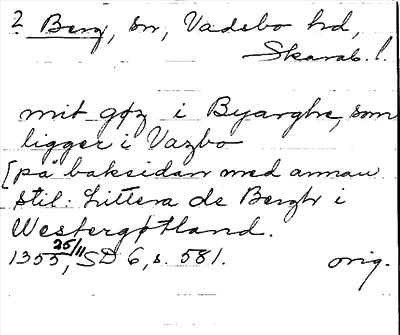 ? Berg, sn, Vadsbo hd,
Skarab. l.
mit gøz i Byærghe, som
ligger i Vazbo
[på baksidan med annan
stil: Littera de Bergh i
Westergøtland.
1355 25/11, SD 6, s. 581. orig.